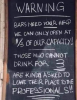 WARNING
BARS NEED YOUR HELP
WE CAN ONLY OPEN AT
OF OUR CAPACITY.
THOSE WHO CANNOT
DRINK FOR
ARE KINDLY ASKED TO
LEAVE THEIR PLACE TO THE
PROFESSIONALS!!